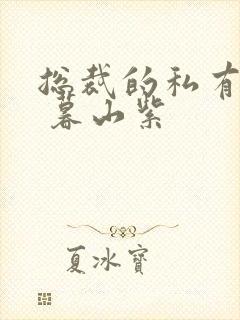 总裁的私有
暮山紫
夏冰宝